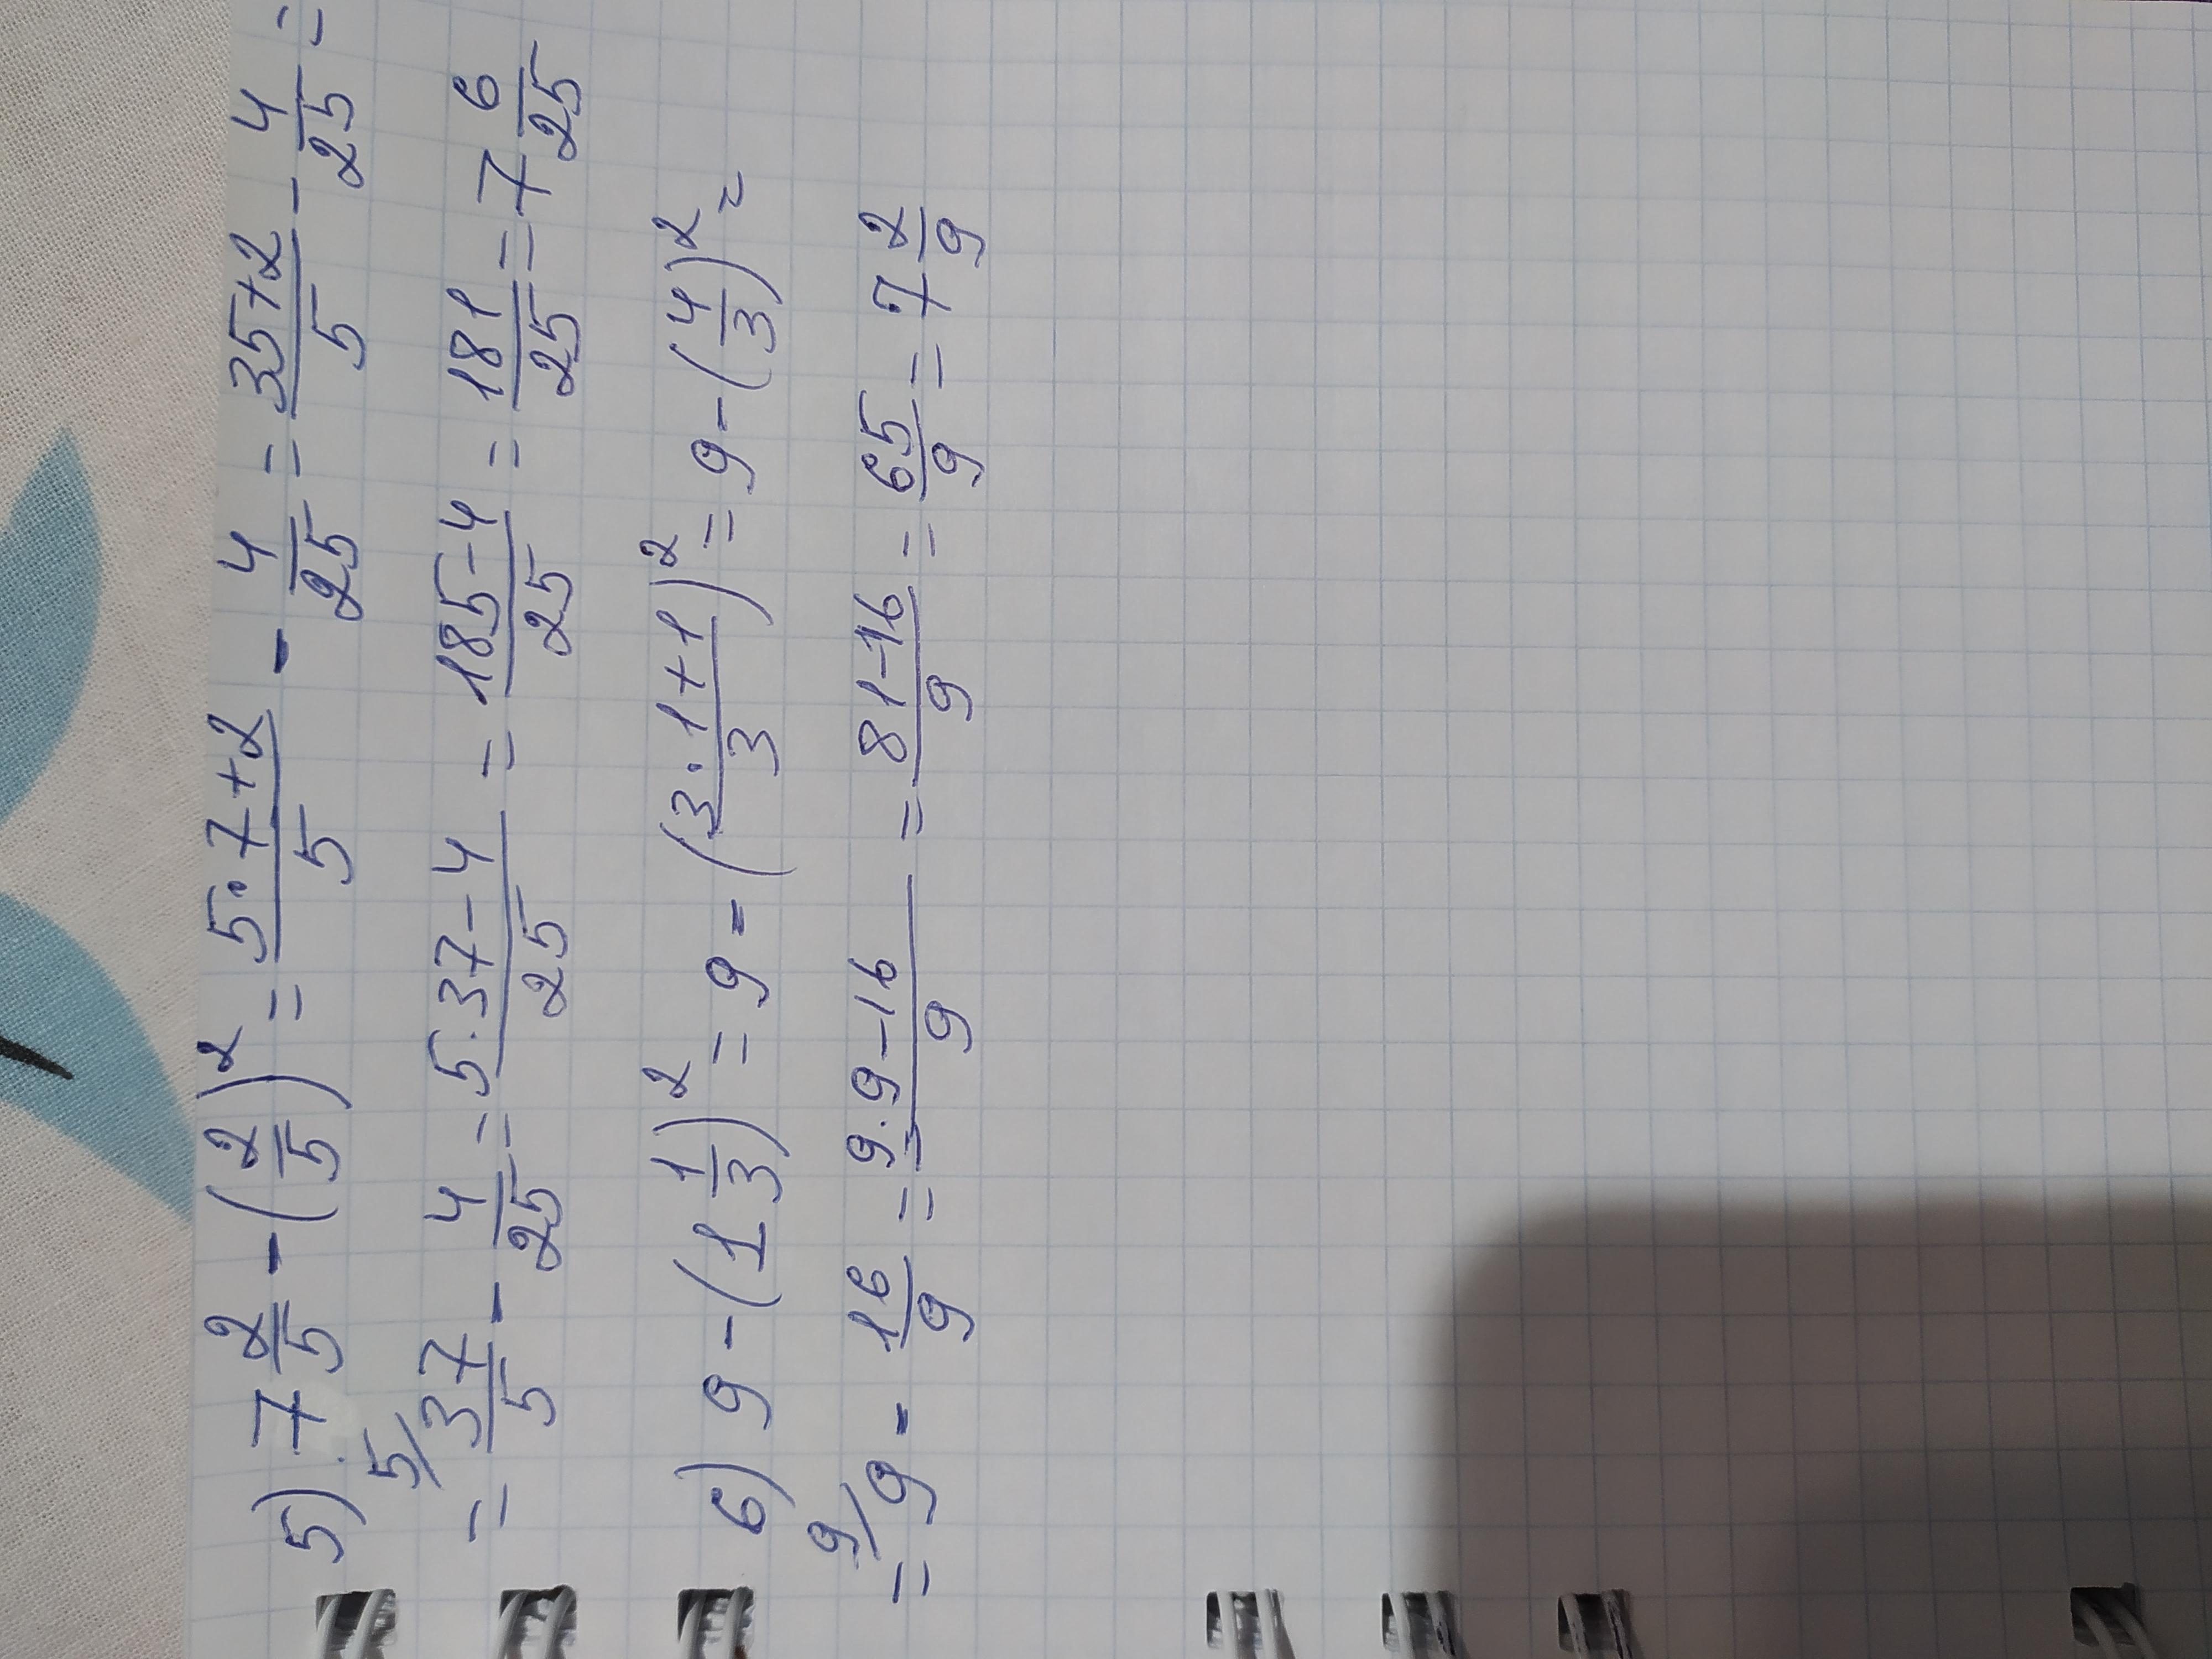 5) 7 2/5 - (2/5)² = (5·7+2)/5 - 4/25 = (35+2)/5 - 4/25 =
= 5/ 37/5 - 4/25 = (5·37-4)/25 = (185-4)/25 = 181/25 = 7 6/25
6) 9 - (1 1/3)² = 9 - ((3·1+1)/3)² = 9 - (4/3)² =
= 9/ 9 - 16/9 = (9·9-16)/9 = (81-16)/9 = 65/9 = 7 2/9